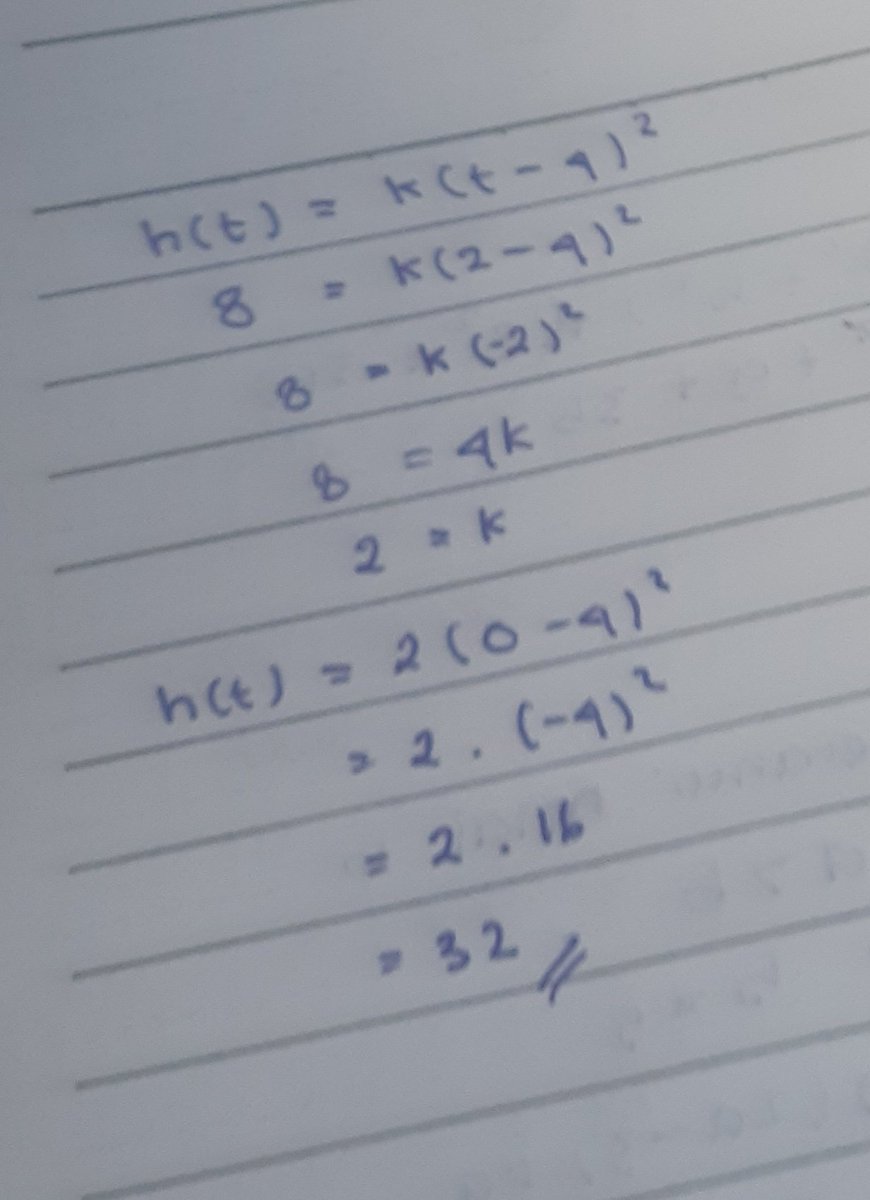 h(t) = k(t - 4)²
8 = k(2 - 4)²
8 = k(-2)²
8 = 4k
2 = k
h(t) = 2(0 - 4)²
= 2 . (-4)²
= 2 . 16
= 32 //